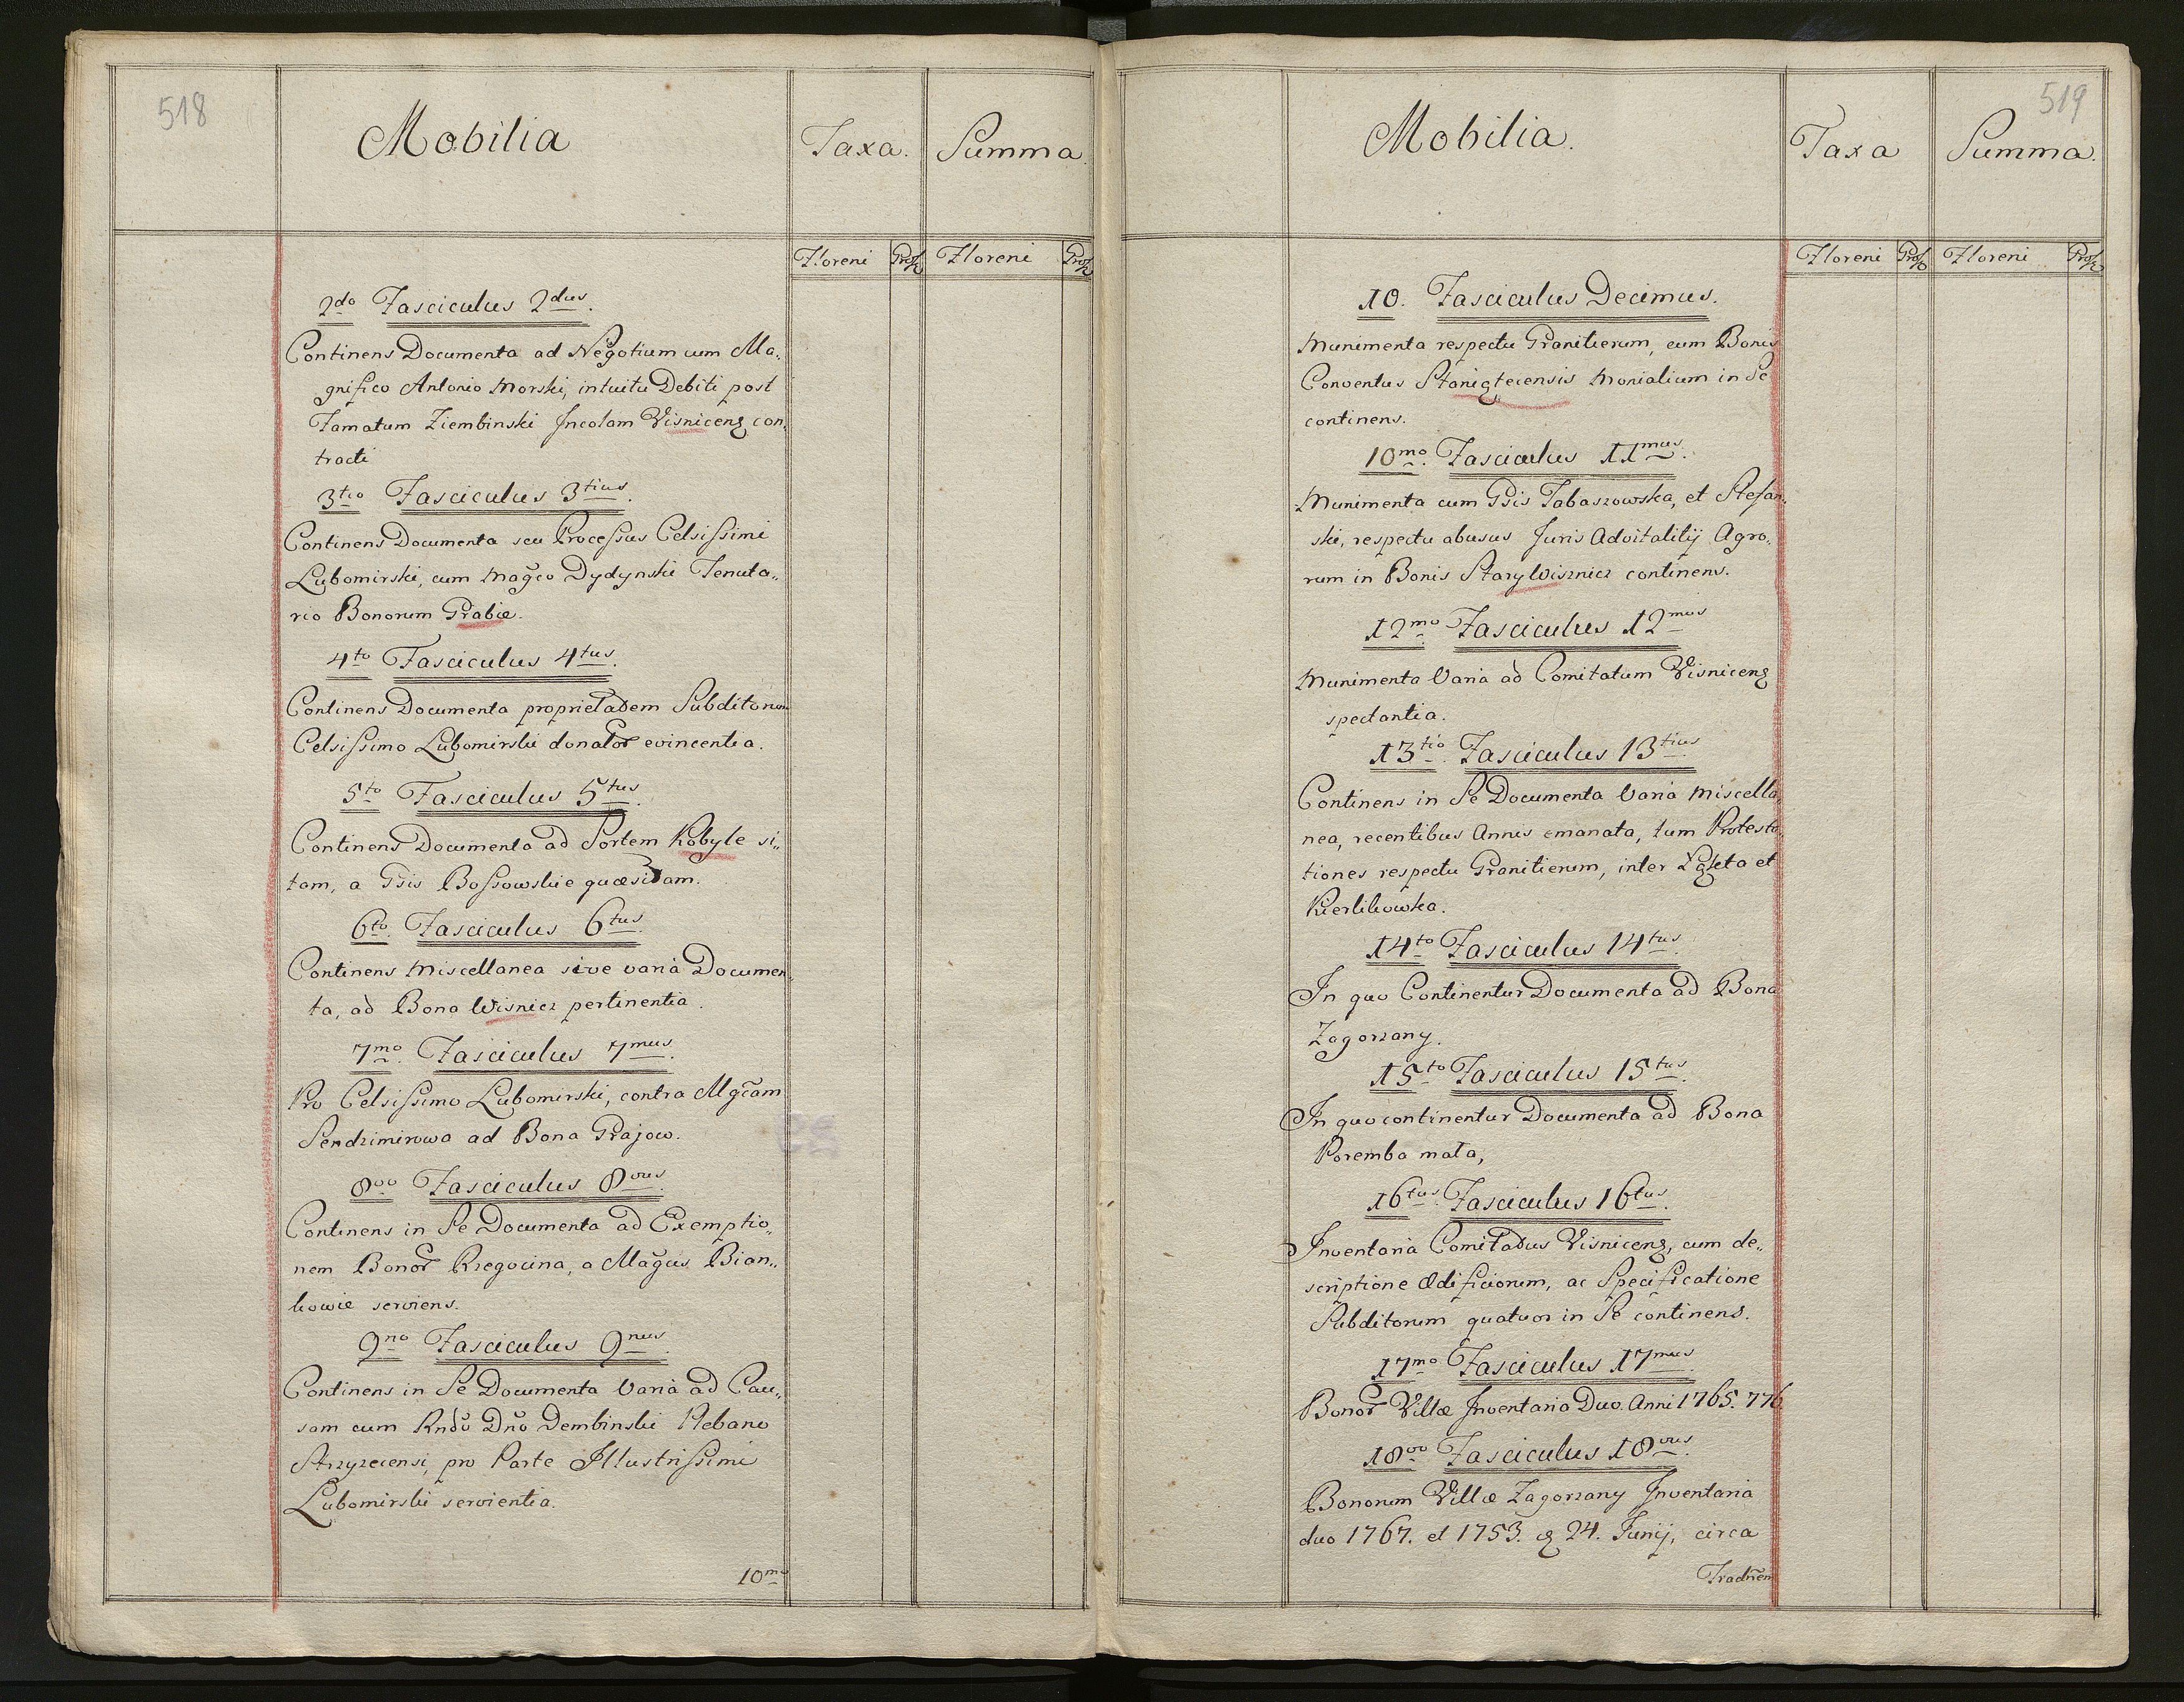 518
Mobilia
Taxa.
Summa
Floreni
Floreni
2do Fasciculus 2dus.
Continens Documenta ad Negotium cum Ma-
gnifico Antonio Morski, intuitu Debiti post
Famatum Ziembinski Incolam Visnicens con-
tracti
3tio Fasciculus 3tius.
Continens Documenta seu Processus Celsissimi
Lubomirski, cum Magco Dydynski Tenuta-
rio Bonorum Grabie.
4to Fasciculus 4tus.
Continens Documenta proprietadem Subditorum
Celsissimo Lubomirski donator evincentia.
5to Fasciculus 5tus.
Continens Documenta ad Sortem Kobyle si-
tam, a Gsis Bossowskie quæsitam.
6to. Fasciculus 6tus.
Continens Miscellanea sive varia Documen
ta, ad Bona Wisnicz pertinentia.
7mo. Fasciculus 7mus.
Pro Celsissimo Lubomirski, contra Mgcam
Sendzimirowa ad Bona Grajow.
8vo Fasciculus 8vus.
Continens in Se Documenta ad Exemptio-
nem Bonor Krzegocina, a Magcis Bian-
kowie serviens.
9no Fasciculus 9nus.
Continens in Se Documenta Varia ad Cau-
sam cum Rndo Dno Dembinski Plebano
Strzyzecensi, pro Parte Illustrissimi
Lubomirski servientia.
10mo
519
Mobilia.
Taxa
Summa.
Floreni
Floreni
10. Fasciculus Decimus.
Munimenta respectu Granitierum, cum Bonis
Conventus Staniątecensis Monialium in Se
continens.
10mo. Fasciculus 11mus.
Munimenta cum Gsis Tabaszowska, et Stefan-
ski, respectu abusus Juris Advitalitij Agro-
rum in Bonis Stary Wisznicz continens.
12mo. Fasciculus 12mus
Munimenta Varia ad Comitatum Visnicens
spectantia.
13tio. Fasciculus 13tius
Continens in Se Documenta Varia Miscella-
nea, recentibus Annis emanata, tum Protesta-
tiones respectu Granitierum, inter Łąkta et
Kierlikowka.
14to Fasciculus 14tus.
In quo Continentur Documenta ad Bona
Zagorzany.
15to Fasciculus 15tus.
In quo continentur Documenta ad Bona
Poremba mała,
16tus. Fasciculus 16tus.
Inventaria Comitadus Visnicens, cum de-
scriptione Ædificiorum, ac Specificatione
Subditorum quatuor in Se continens.
17mo Fasciculus 17mus.
Bonor Villæ Inventaria Duo Anni 1765. 776
18vo Fasciculus 18vus.
Bonorum Villæ Zagorzany Inventaria
duo 1767. et 1753. 24. Junij, circa